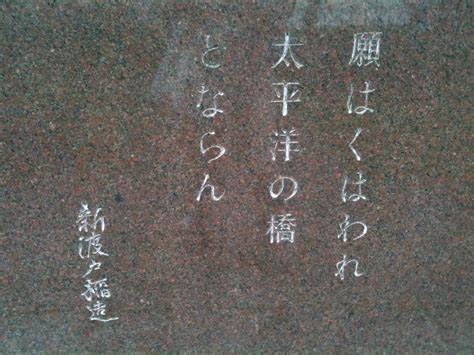 願はくはわれ
太平洋の橋
とならん
新渡戸稲造